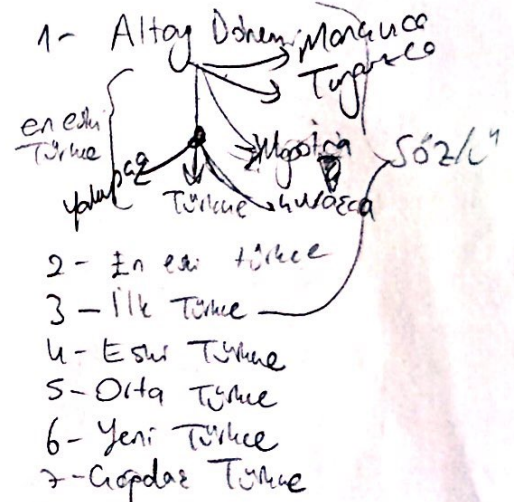 1- Altay Dönemi Mançuca
Tunguzca
en eski
Türkçe
Sözlü
Türkçe
2- En eski türkçe
3- İlk Türkçe
4- Eski Türkçe
5- Orta Türkçe
6- Yeni Türkçe
7- Çağdaş Türkçe